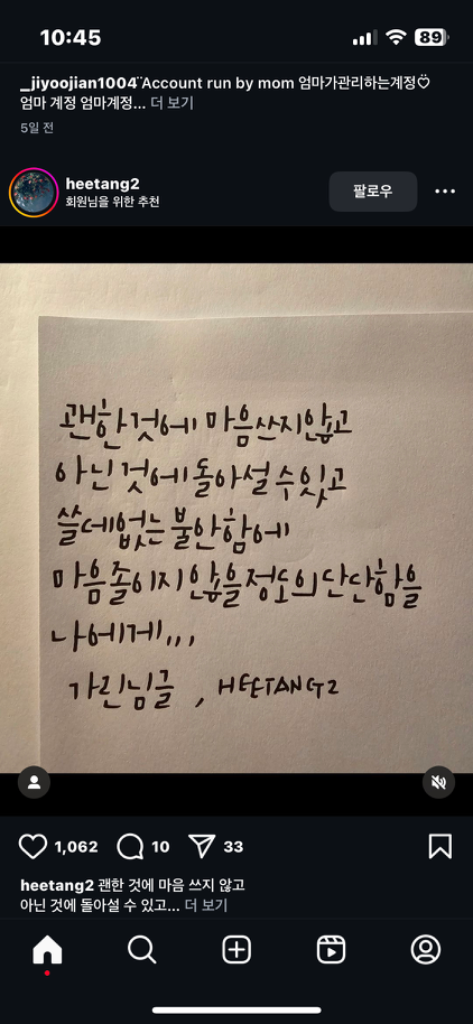 10:45
89
_jiyoojian1004 ̈Account run by mom 엄마가관리하는계정♡̈
엄마 계정 엄마계정... 더 보기
5일 전
heetang2
회원님을 위한 추천
팔로우
괜한것에 마음쓰지않고
아닌것에 돌아설 수 있고
쓸데없는 불안함에
마음졸이지 않을정도의 단단함을
나에게,,,
가린님글 , HEETANG2
1,062
10
33
heetang2 괜한 것에 마음 쓰지 않고
아닌 것에 돌아설 수 있고... 더 보기